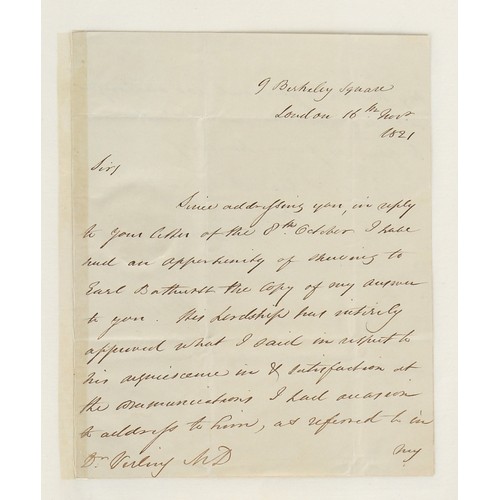 9 Berkeley Square
London 16th Novr
1821
Sir,
Since addressing you, in reply
to your letter of the 8th October I have
had an opportunity of shewing to
Earl Bathurst the copy of my answer
to you. His Lordship has entirely
approved what I said in respect to
his acquiescence in & satisfaction at
the communications I had occasion
to address to him, as referred to in
Dr Verling MD
my